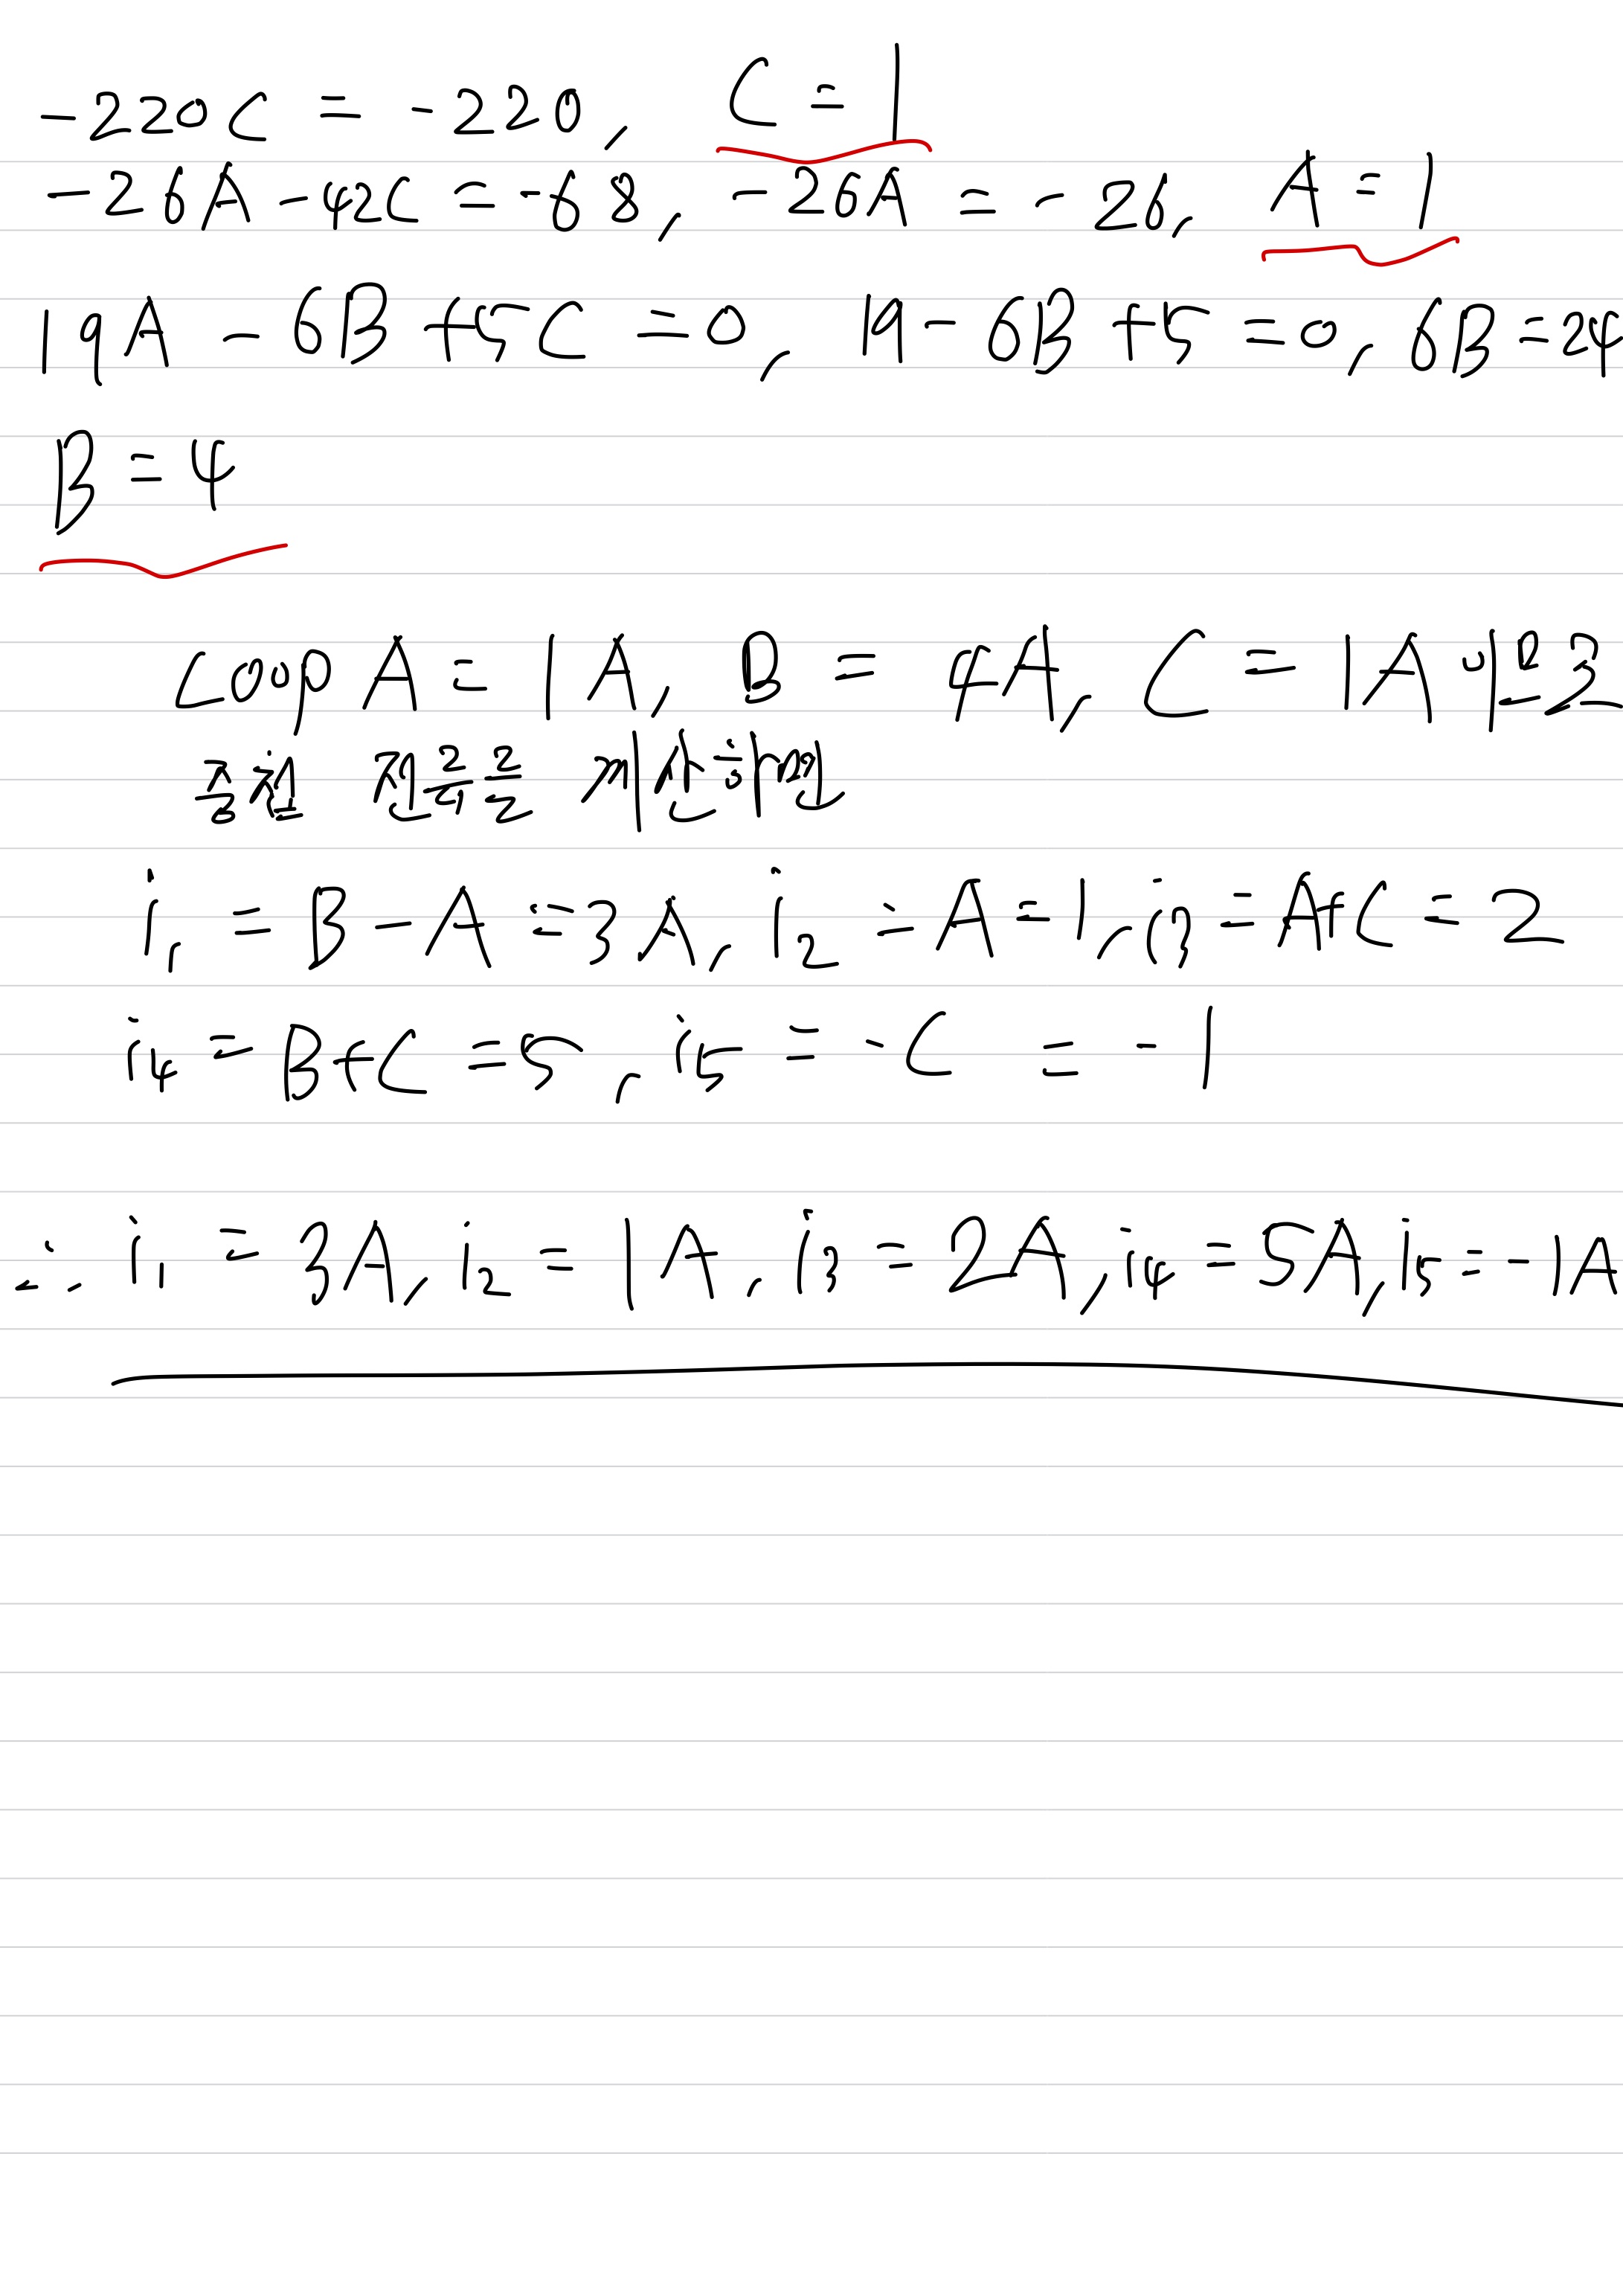 -220C = -220, C = 1
-26A - 42C = -68, -26A = -26, A = 1
19A - 6B + 5C = 0, 19 - 6B + 5 = 0, 6B = 24
B = 4
Loop A = 1A, B = 4A, C = 1A 이므로
각 전류를 계산하면
i₁ = B - A = 3A, i₂ = A = 1, i₃ = A+C = 2
i₄ = B+C = 5, i₅ = -C = -1
∴ i₁ = 3A, i₂ = 1A, i₃ = 2A, i₄ = 5A, i₅ = -1A